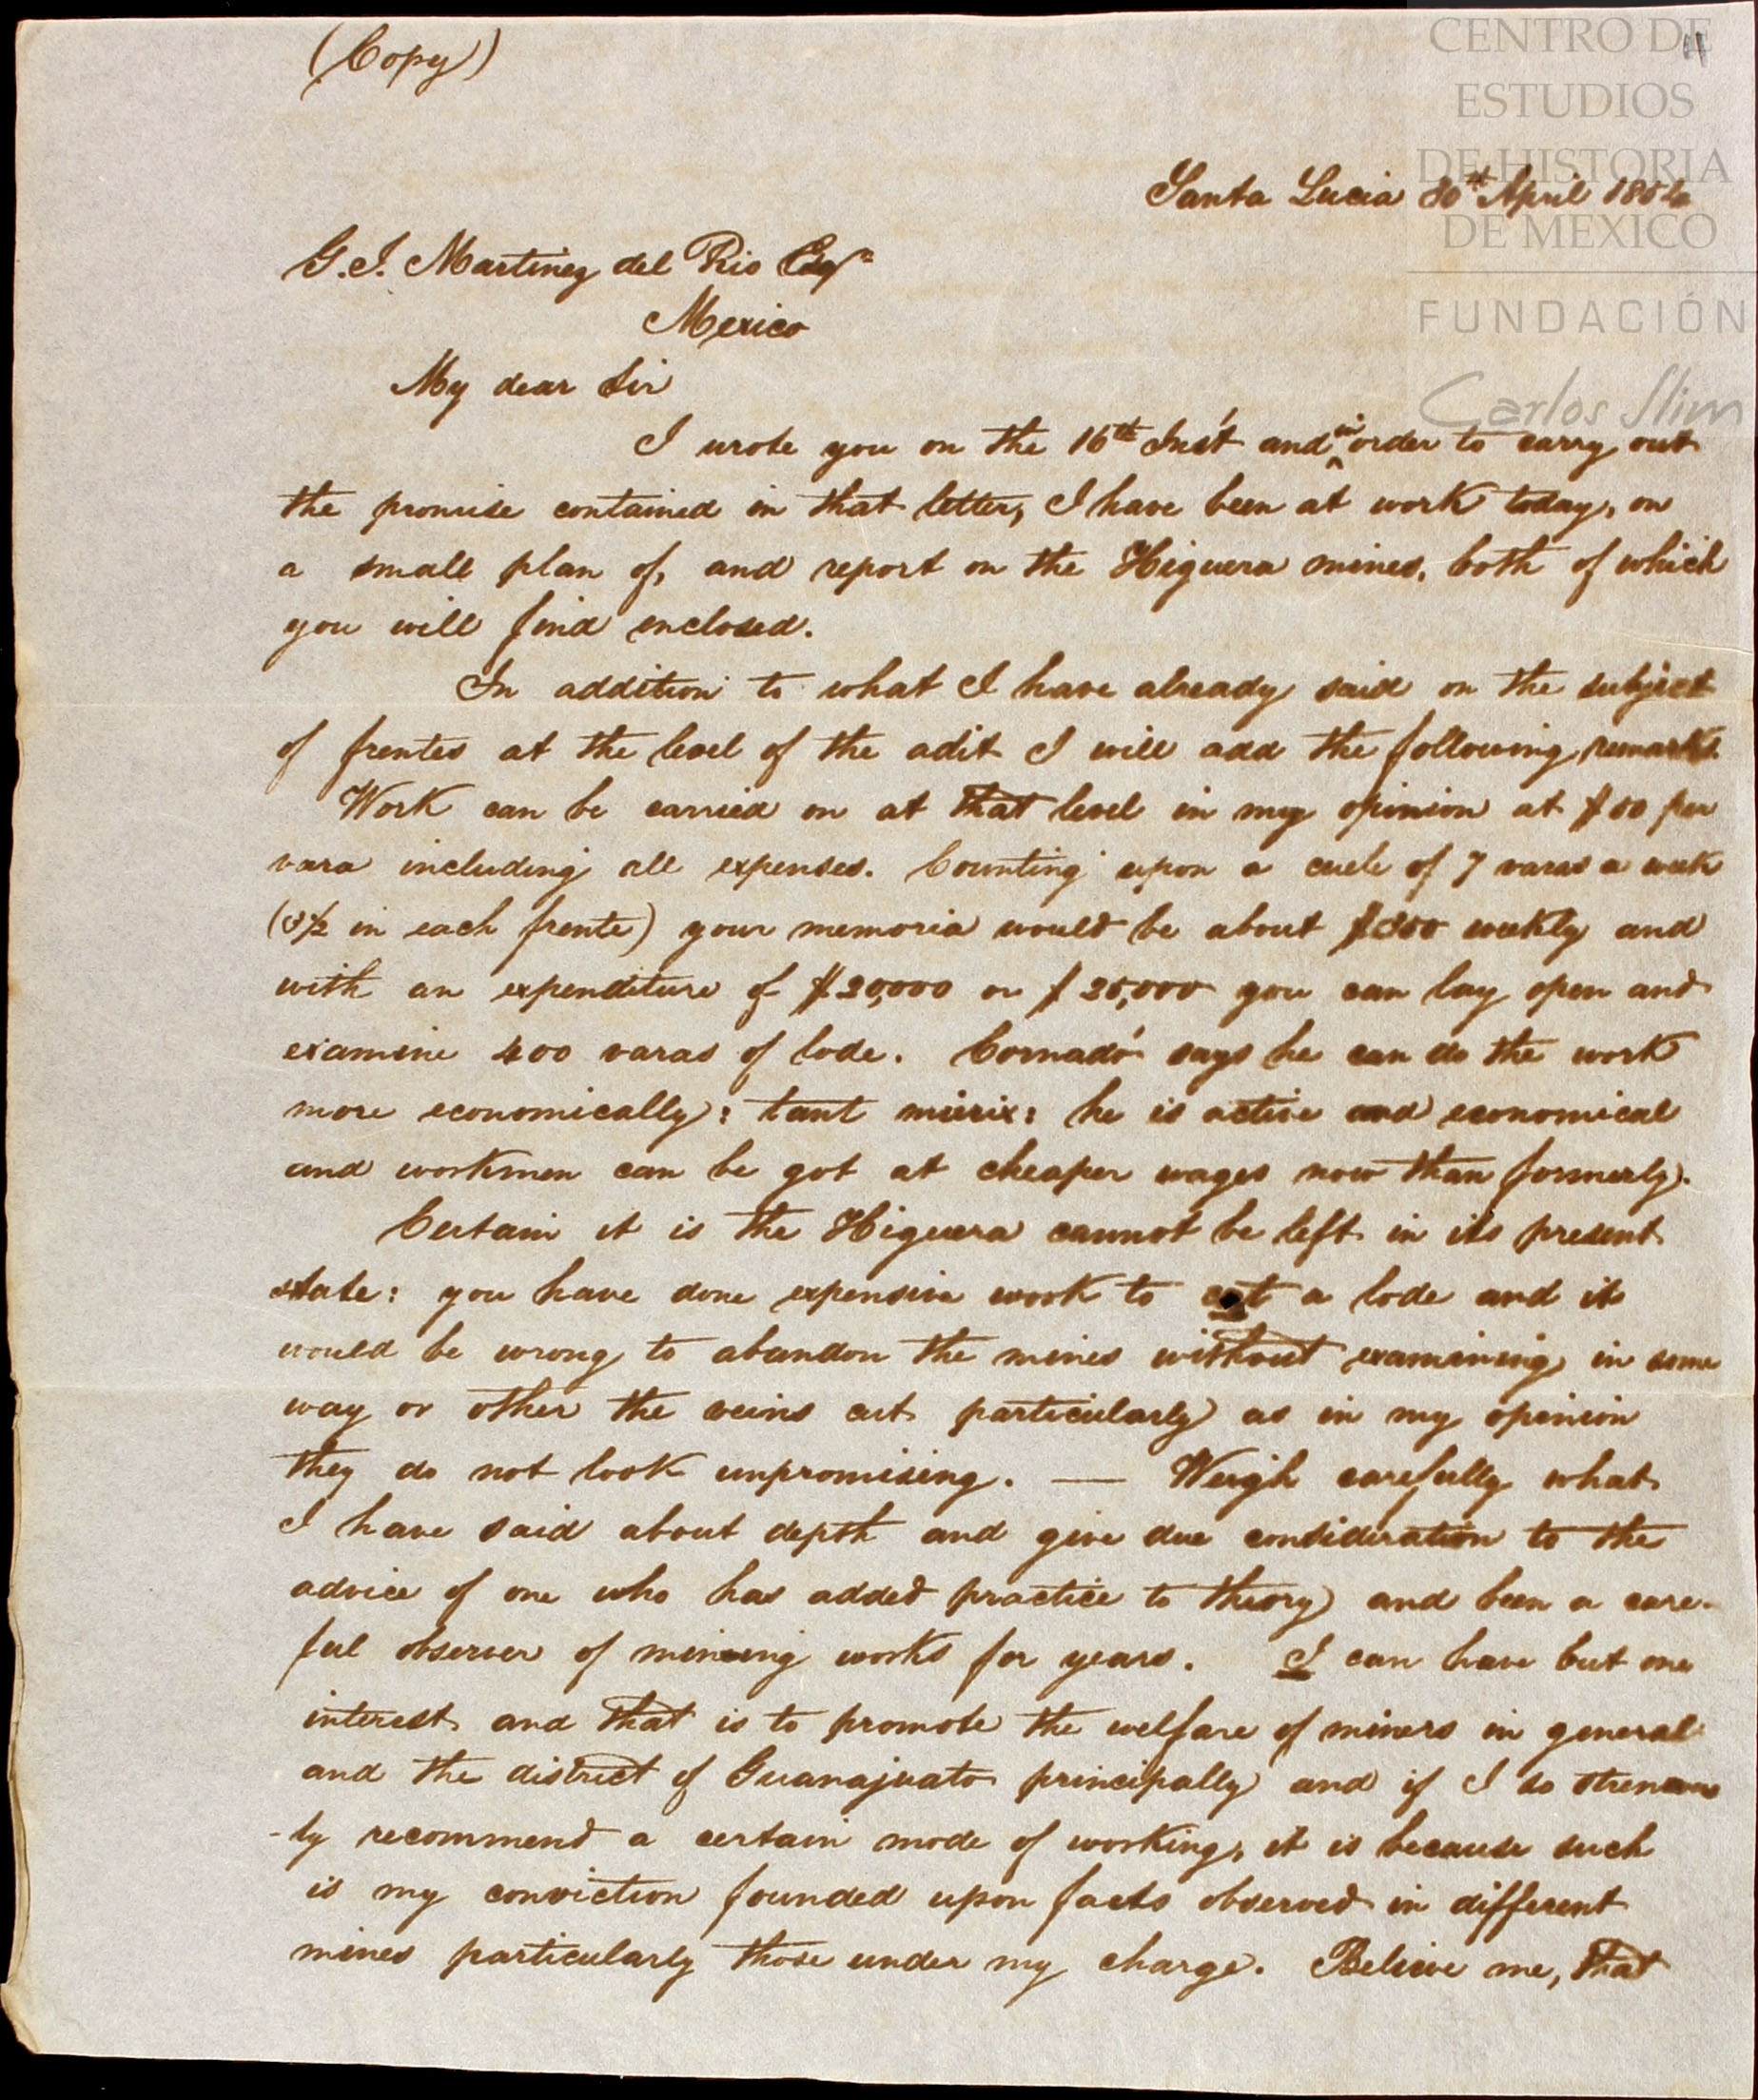 (Copy)
CENTRO DE
ESTUDIOS
DE HISTORIA
DE MEXICO
FUNDACIÓN
Carlos Slim
Santa Lucia 30th April 185
G. I. Martinez del Rio Esqr
Mexico
My dear Sir
I wrote you on the 16th Inst and in order to carry out
the promise contained in that letter, I have been at work today, on
a small plan of, and report on the Higuera mines, both of which
you will find enclosed.
In addition to what I have already said on the subject
of frentes at the level of the adit I will add the following remarks.
Work can be carried on at that level in my opinion at $50 per
vara including all expenses. Counting upon a cuele of 7 varas a week
(3½ in each frente) your memoria would be about $350 weekly and
with an expenditure of $20,000 or $25,000 you can lay open and
examine 400 varas of lode. Cornadó says he can do the work
more economically: tant mieux: he is active and economical
and workmen can be got at cheaper wages now than formerly.
Certain it is the Higuera cannot be left in its present
state: you have done expensive work to cut a lode and it
would be wrong to abandon the mines without examining in some
way or other the veins cut particularly as in my opinion
they do not look unpromising. — Weigh carefully what
I have said about depth and give due consideration to the
advice of one who has added practice to theory and been a care-
ful observer of mining works for years. I can have but one
interest and that is to promote the welfare of miners in general
and the district of Guanajuato principally and if I so strenuous
-ly recommend a certain mode of working, it is because such
is my conviction founded upon facts observed in different
mines particularly those under my charge. Believe me, that